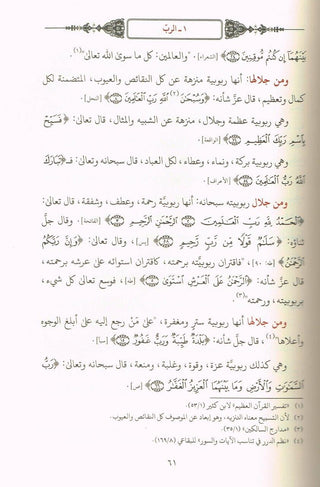 ١ - الربّ
بَيْنَهُمَا إِن كُنتُم مُّوقِنِينَ [الشعراء]. "والعالمين: كل ما سوى الله تعالى"(١).
ومن جلالها: أنها ربوبية منزهة عن كل النقائص والعيوب، المتضمنة لكل
كمال وتعظيم، قال عزَّ شأنه: ﴿وَسُبْحَٰنَ(٢) ٱللَّهِ رَبِّ ٱلْعَٰلَمِينَ﴾ [النمل].
وهي ربوبية عظمة وجلال، منزهة عن الشبيه والمثال، قال تعالى: ﴿فَسَبِّحْ
بِٱسْمِ رَبِّكَ ٱلْعَظِيمِ﴾ [الواقعة].
وهي ربوبية بركة، ونماء، وعطاء، لكل العباد، قال سبحانه وتعالى: ﴿تَبَارَكَ
ٱللَّهُ رَبُّ ٱلْعَٰلَمِينَ﴾ [الأعراف].
ومن جلال ربوبيته سبحانه: أنها ربوبيَّة رحمة، وعطف، وشفقة، قال تعالى:
﴿ٱلْحَمْدُ لِلَّهِ رَبِّ ٱلْعَٰلَمِينَ ٱلرَّحْمَٰنِ ٱلرَّحِيمِ﴾ [الفاتحة]. وقال جلَّ
ثناؤه: ﴿سَلَٰمٌ قَوْلًا مِّن رَّبٍّ رَّحِيمٍ﴾ [يس]، وقال تعالى: ﴿وَإِنَّ رَبَّكُمُ
ٱلرَّحْمَٰنُ﴾ [طه: ٩٠]. "فاقتران ربوبيته برحمته، كاقتران استوائه على عرشه برحمته،
قال عزَّ شأنه: ﴿ٱلرَّحْمَٰنُ عَلَى ٱلْعَرْشِ ٱسْتَوَىٰ﴾ [طه]، فوسع تعالى كل شيء،
بربوبيته، ورحمته"(٣).
ومن جلالها: أنها ربوبيّة سترٍ ومغفرة، "على مَنْ رجع إليه على أبلغ الوجوه
وأعلاها"(٤)، قال جلَّ شأنه: ﴿بَلْدَةٌ طَيِّبَةٌ وَرَبٌّ غَفُورٌ﴾ [سبأ].
وهي كذلك ربوبيَّة عزة، وقوة، وغلبة، ومنعة، قال سبحانه وتعالى: ﴿رَبُّ
ٱلسَّمَٰوَٰتِ وَٱلْأَرْضِ وَمَا بَيْنَهُمَا ٱلْعَزِيزُ ٱلْغَفَّٰرُ﴾ [ص].
(١) "تفسير القرآن العظيم" لابن كثير (٥٣/١).
(٢) لأن التسبيح معناه التنزيه، وهو إبعاد عن الموصوف كل النقائص والعيوب.
(٣) "مدارج السالكين" (٣٥/١).
(٤) "نظم الدرر في تناسب الآيات والسور" للبقاعي (١٦٩/٨).
٦١